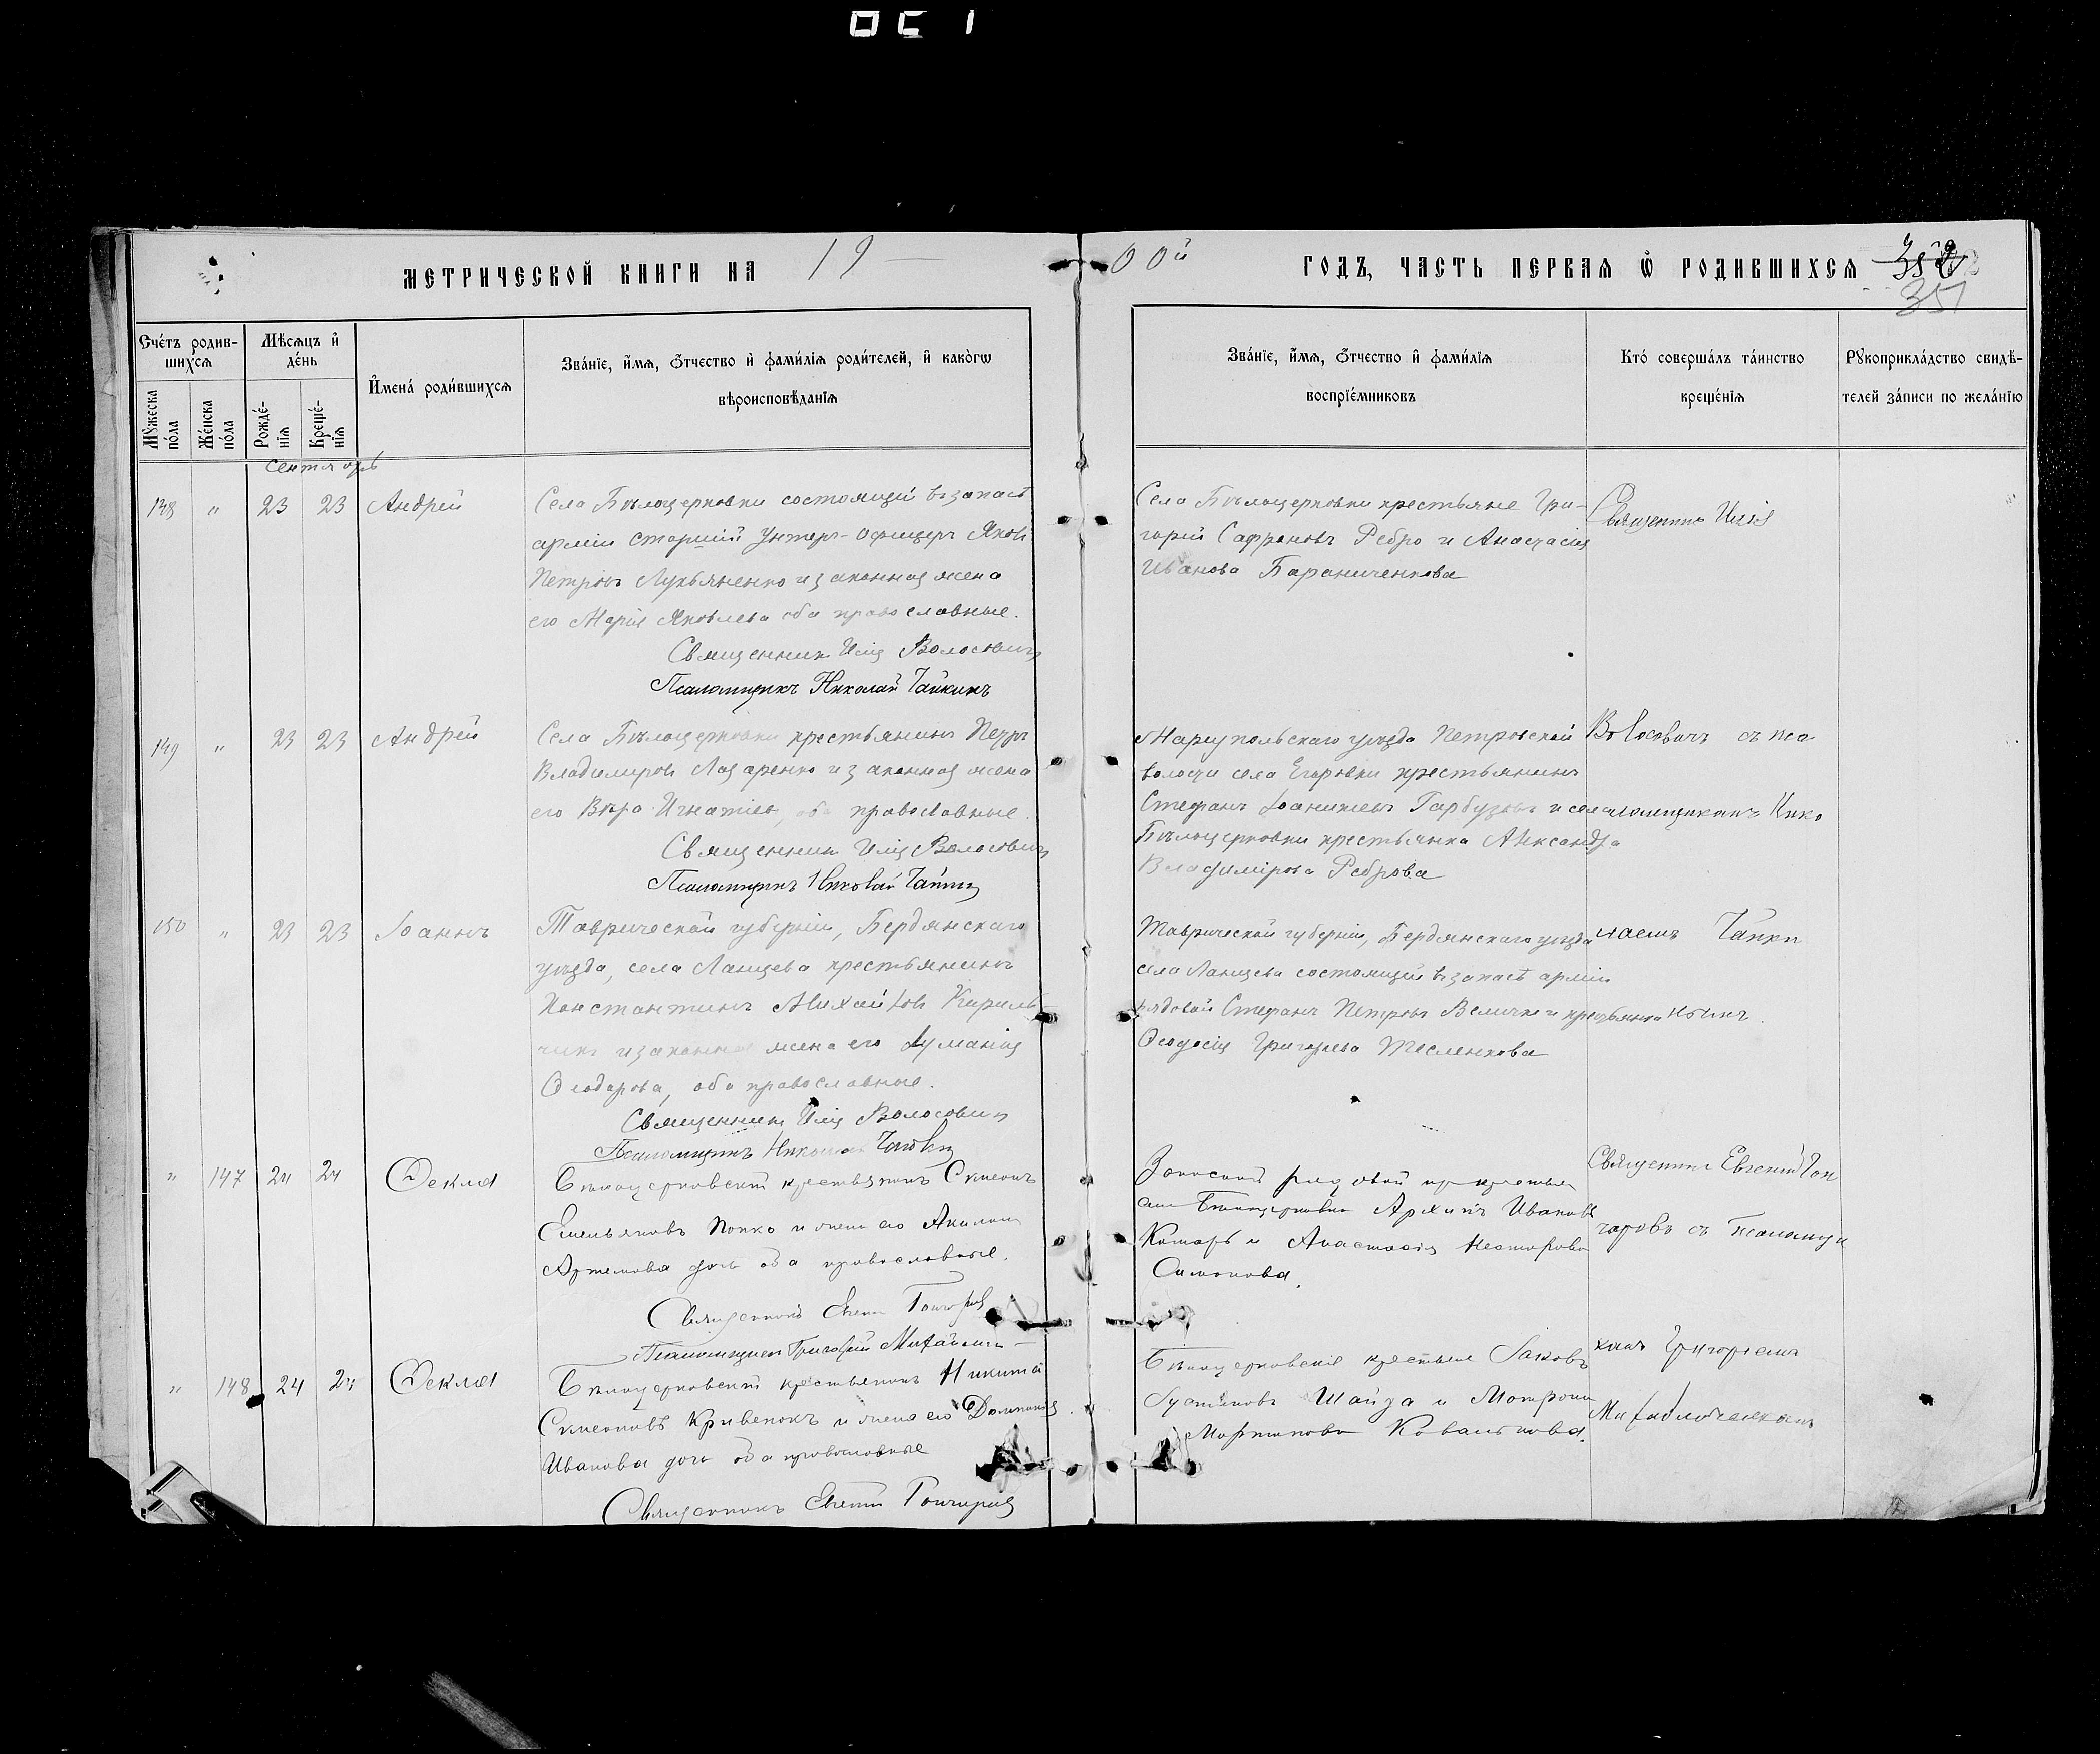 МЕТРИЧЕСКОЙ КНИГИ НА 19
00й ГОДЪ, ЧАСТЬ ПЕРВАЯ Ѽ РОДИВШИХСЯ
351
Счéтъ родив-
шихся
Мѣсяцъ и
дéнь
Имена́ роди́вшихся
Зва́нїе, и́мя, ѻ҆́тчество и҆ фами́лїя роди́телей, и҆ како́гѡ
вѣроисповѣ́данїя
Му́жеска
по́ла
Же́нска
по́ла
Рожде́-
нїя
Креще́-
нїя
Зва́нїе, и́мя, ѻ҆́тчество и҆ фами́лїя
воспрїе́мниковъ
Кто́ соверша́лъ та́инство
креще́нїя
Рꙋкоприкла́дство свидѣ́-
телей за́писи по жела́нїю
Сентябрь
148 " 23 23 Андрей
Села Бѣлоцерковки состоящій въ запасѣ
арміи старшій унтеръ-офицеръ Яковъ
Петровъ Лукьяненко и законная жена
его Марія Яковлева оба православные.
Священникъ Илія Волосовичъ
Псаломщикъ Николай Чайкинъ
Села Бѣлоцерковки крестьяне Гри-
горій Сафроновъ Ребро и Анастасія
Иванова Бараниченкова
Священникъ Илія
149 " 23 23 Андрей
Села Бѣлоцерковки крестьянинъ Петръ
Владимировъ Лазаренко и законная жена
его Вѣра Игнатіева, оба православные.
Священникъ Илія Волосовичъ
Псаломщикъ Николай
Маріупольскаго уѣзда Петровской
волости села Егоровки крестьянинъ
Стефанъ Іоанникіевъ Гарбузовъ и села
Бѣлоцерковки крестьянка Александра
Владимірова Реброва
Волосовичъ съ пса
ломщикомъ Нико
150 " 23 23 Іоаннъ
Таврической губерніи, Бердянскаго
уѣзда, села Ланцева крестьянинъ
Константинъ Михайловъ Кириль-
чикъ и законная жена его
Ѳеодорова, оба православные.
Священникъ Илія Волосовичъ
Псаломщикъ Николай
Таврической губерніи, Бердянскаго уѣзда
села Ланцева состоящій въ запасѣ арміи
рядовой Стефанъ Петровъ Величко и крестьянка
Ѳеодосія Григорьева Тесленкова
лаемъ Чайки
нымъ.
" 147 24 24 Ѳекла
Бѣлоцерковскій крестьянинъ Симеонъ
Емельяновъ Попко и жена его Акилина
Артемова дочь оба православные.
Священникъ Евгеній Гончаровъ
Псаломщикъ Григорій
Запасной рядовой
села Бѣлоцерковки Архипъ Ивановъ
Комарь и Анастасія Несторова
Симонова.
Священникъ Евгеній Гон
чаровъ съ Псаломщи
" 148 24 24 Ѳекла
Бѣлоцерковскій крестьянинъ Никита
Симеоновъ Кривенокъ и жена его Домникія
Иванова дочь оба православные
Священникъ Евгеній Гончаровъ
Бѣлоцерковскіе крестьяне Іаковъ
Іустиновъ Шайда и Матрона
Мартинова Ковалькова.
комъ Григоріемъ